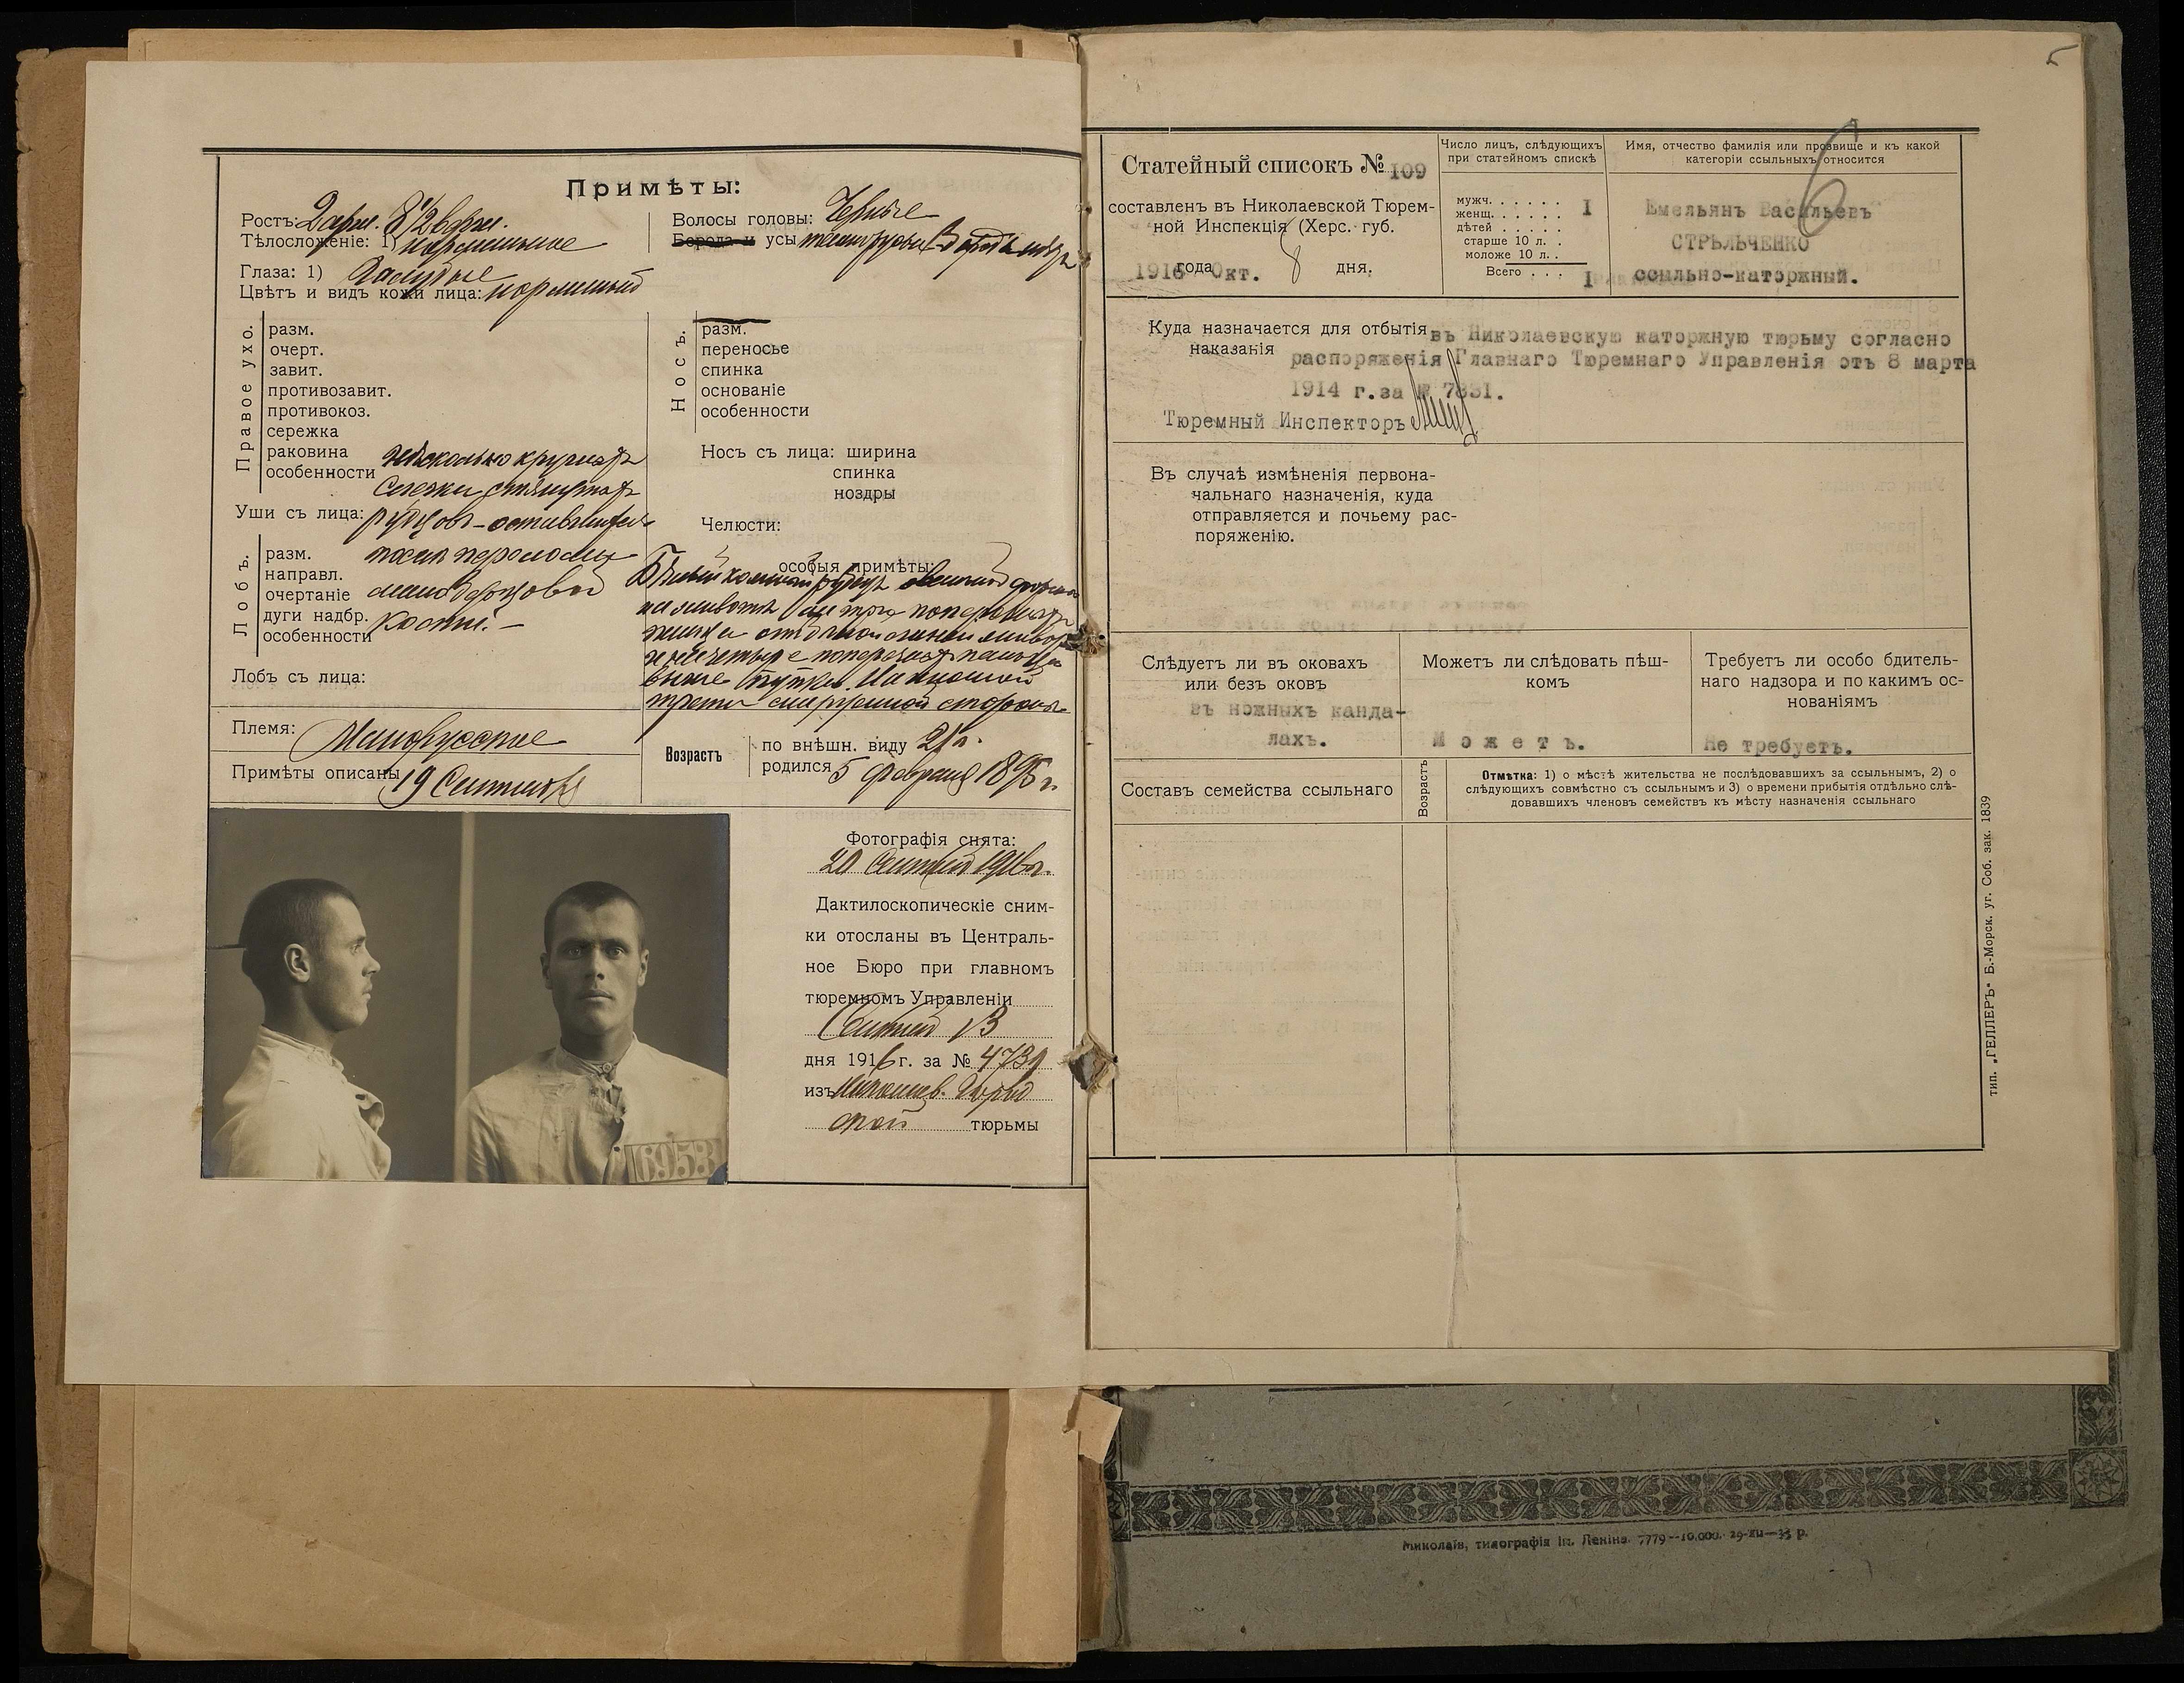 Примѣты:
Ростъ: 2 арш. 8 1/2 верш.
Тѣлосложеніе: 1) нормальное
Глаза: 1) Голубые
Цвѣтъ и видъ кожи лица: нормальный
Волосы головы: Черные
Борода и усы темнорусые Бороды нѣтъ
Правое ухо.
разм.
очерт.
завит.
противозавит.
противокоз.
сережка
раковина
особенности
нѣсколько круглыхъ
рубцовъ-оставшихся
Уши съ лица:
Лобъ.
разм.
направл.
очертаніе
дуги надбр.
особенности
послѣ перелома
кости.-
Лобъ съ лица:
Носъ.
разм.
переносье
спинка
основаніе
особенности
Носъ съ лица: ширина
спинка
ноздры
Челюсти:
особыя примѣты:
рубецъ
на животѣ на три поперечныхъ
пальца отъ
и на четыре поперечныхъ пальца
выше пупка. На
трети стороны
Племя: Малорусское
Примѣты описаны 19 Сентября
Возрастъ
по внѣшн. виду 21 г.
родился 5 февраля 1895 г.
6953
Фотографія снята:
20 Сентября 1916 г.
Дактилоскопическіе сним-
ки отосланы въ Централь-
ное Бюро при главномъ
тюремномъ Управленіи
Сентября
дня 1916 г. за №
изъ Николаев. Город
ской тюрьмы
5
6
Статейный списокъ № 109
составленъ въ Николаевской Тюрем-
ной Инспекція (Херс. губ.
1916 года Окт. 8 дня.
Число лицъ, слѣдующихъ
при статейномъ спискѣ
мужч. . . . . . I
женщ. . . . . .
дѣтей . . . . .
старше 10 л. .
моложе 10 л. .
Всего . . . I
Имя, отчество фамилія или прозвище и къ какой
категоріи ссыльныхъ относится
Емельянъ Васильевъ
СТРѢЛЬЧЕНКО
ссыльно-каторжный.
Куда назначается для отбытія
наказанія
въ Николаевскую каторжную тюрьму согласно
распоряженія Главнаго Тюремнаго Управленія отъ 8 марта
1914 г. за № 7831.
Тюремный Инспекторъ
Въ случаѣ измѣненія первона-
чальнаго назначенія, куда
отправляется и почьему рас-
поряженію.
Слѣдуетъ ли въ оковахъ
или безъ оковъ
въ ножныхъ канда-
лахъ.
Можетъ ли слѣдовать пѣш-
комъ
Можетъ.
Требуетъ ли особо бдитель-
наго надзора и по какимъ ос-
нованіямъ
Не требуетъ.
Составъ семейства ссыльнаго
Возрастъ
Отмѣтка: 1) о мѣстѣ жительства не послѣдовавшихъ за ссыльнымъ, 2) о
слѣдующихъ совмѣстно съ ссыльнымъ и 3) о времени прибытія отдѣльно слѣ-
довавшихъ членовъ семействъ къ мѣсту назначенія ссыльнаго
тип. „ГЕЛЛЕРЪ" Б.-Морск. уг. Соб. зак. 1839
Миколаїв, типографія ім. Леніна. 7779—10.000. 29-XII—33 р.